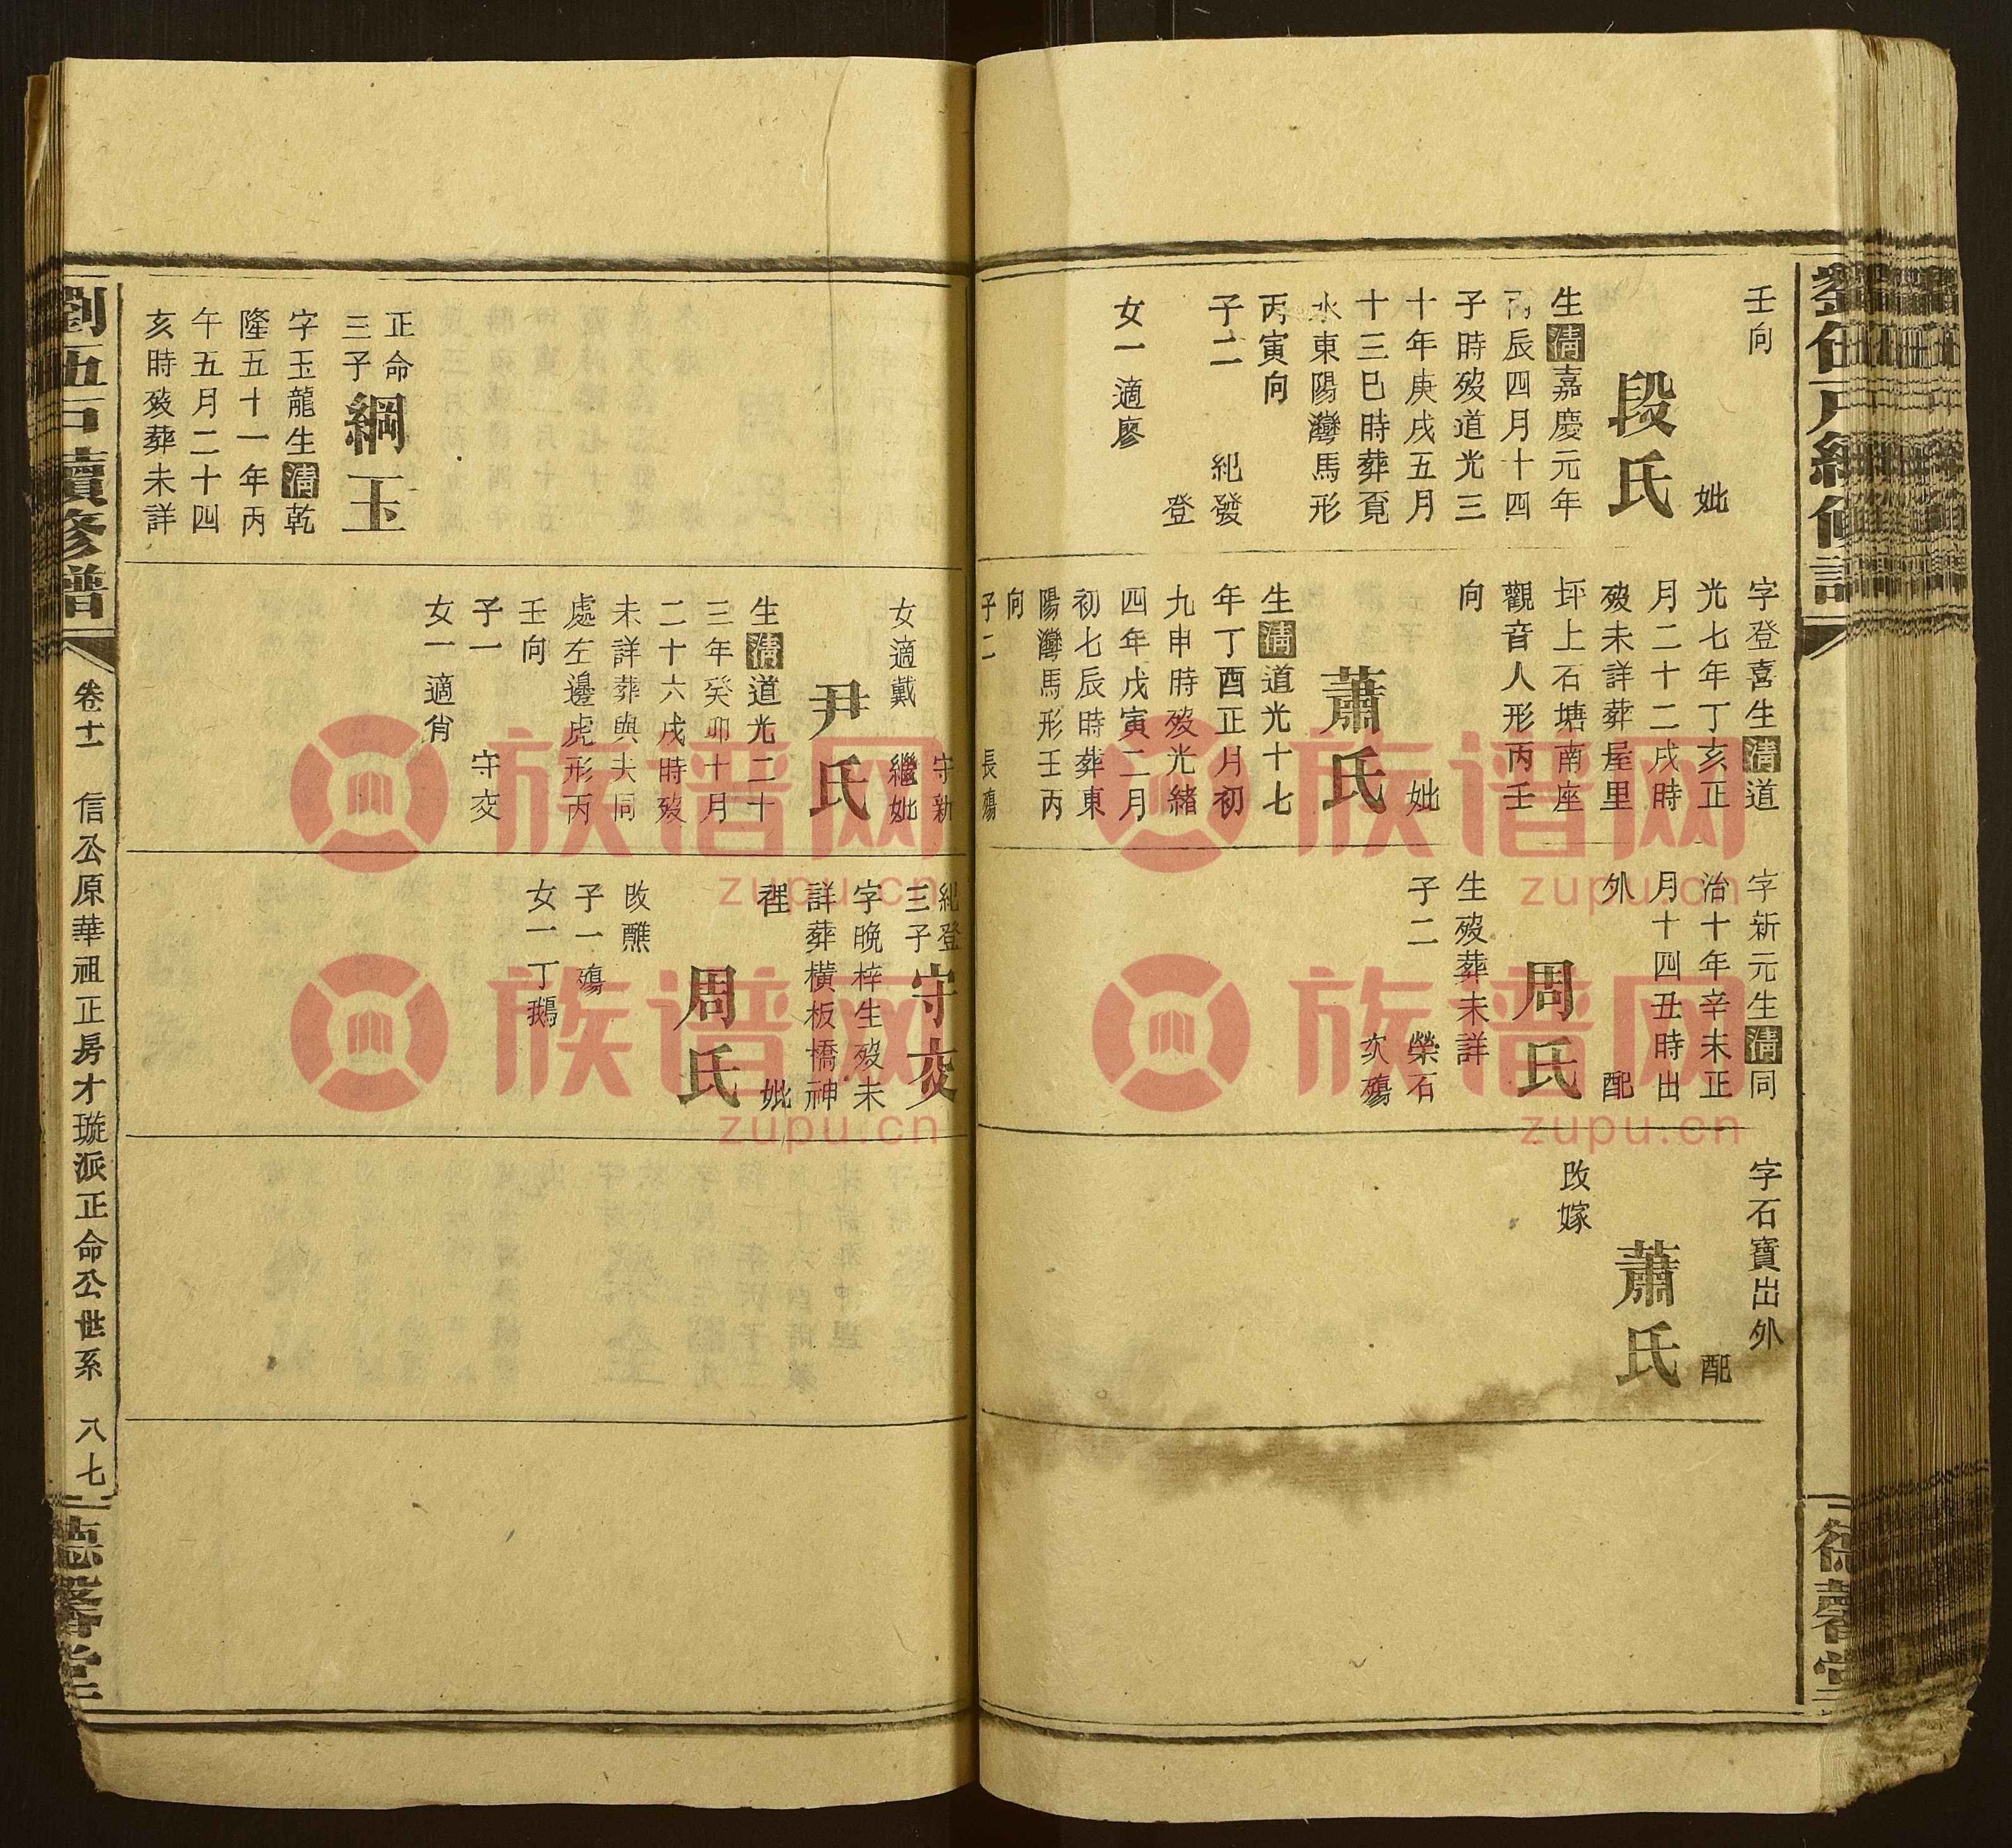 壬向
妣
段氏
生清嘉慶元年
丙辰四月十四
子時歿道光三
十年庚戌五月
十三巳時葬覔
水東陽灣馬形
丙寅向
子二 紀發
登
女一適廖
字登喜生清道
光七年丁亥正
月二十二戌時
歿未詳葬屋里
坪上石塘南座
觀音人形丙壬
向
妣
蕭氏
生清道光十七
年丁酉正月初
九申時歿光緒
四年戊寅二月
初七辰時葬東
陽灣馬形壬丙
向
子二 長殤
字新元生清同
治十年辛未正
月十四丑時出
外 配
周氏
生歿葬未詳
子二 榮石
次殤
字石寶出外
配
蕭氏
改嫁
守新
女適戴 繼妣
尹氏
生清道光二十
三年癸卯十月
二十六戌時歿
未詳葬與夫同
處左邊虎形丙
壬向
子一 守交
女一適肖
紀登
三子守交
字晚梓生歿未
詳葬橫板橋神
 妣
周氏
改醮
子一殤
女一丁鵝
正命
三子綱玉
字玉龍生清乾
隆五十一年丙
午五月二十四
亥時歿葬未詳
劉伍石續修譜
卷十一 信公原華祖正房才璇派正命公世系 八七
德馨堂
德馨堂
族谱网
zupu.cn
族谱网
zupu.cn
族谱网
zupu.cn
族谱网
zupu.cn